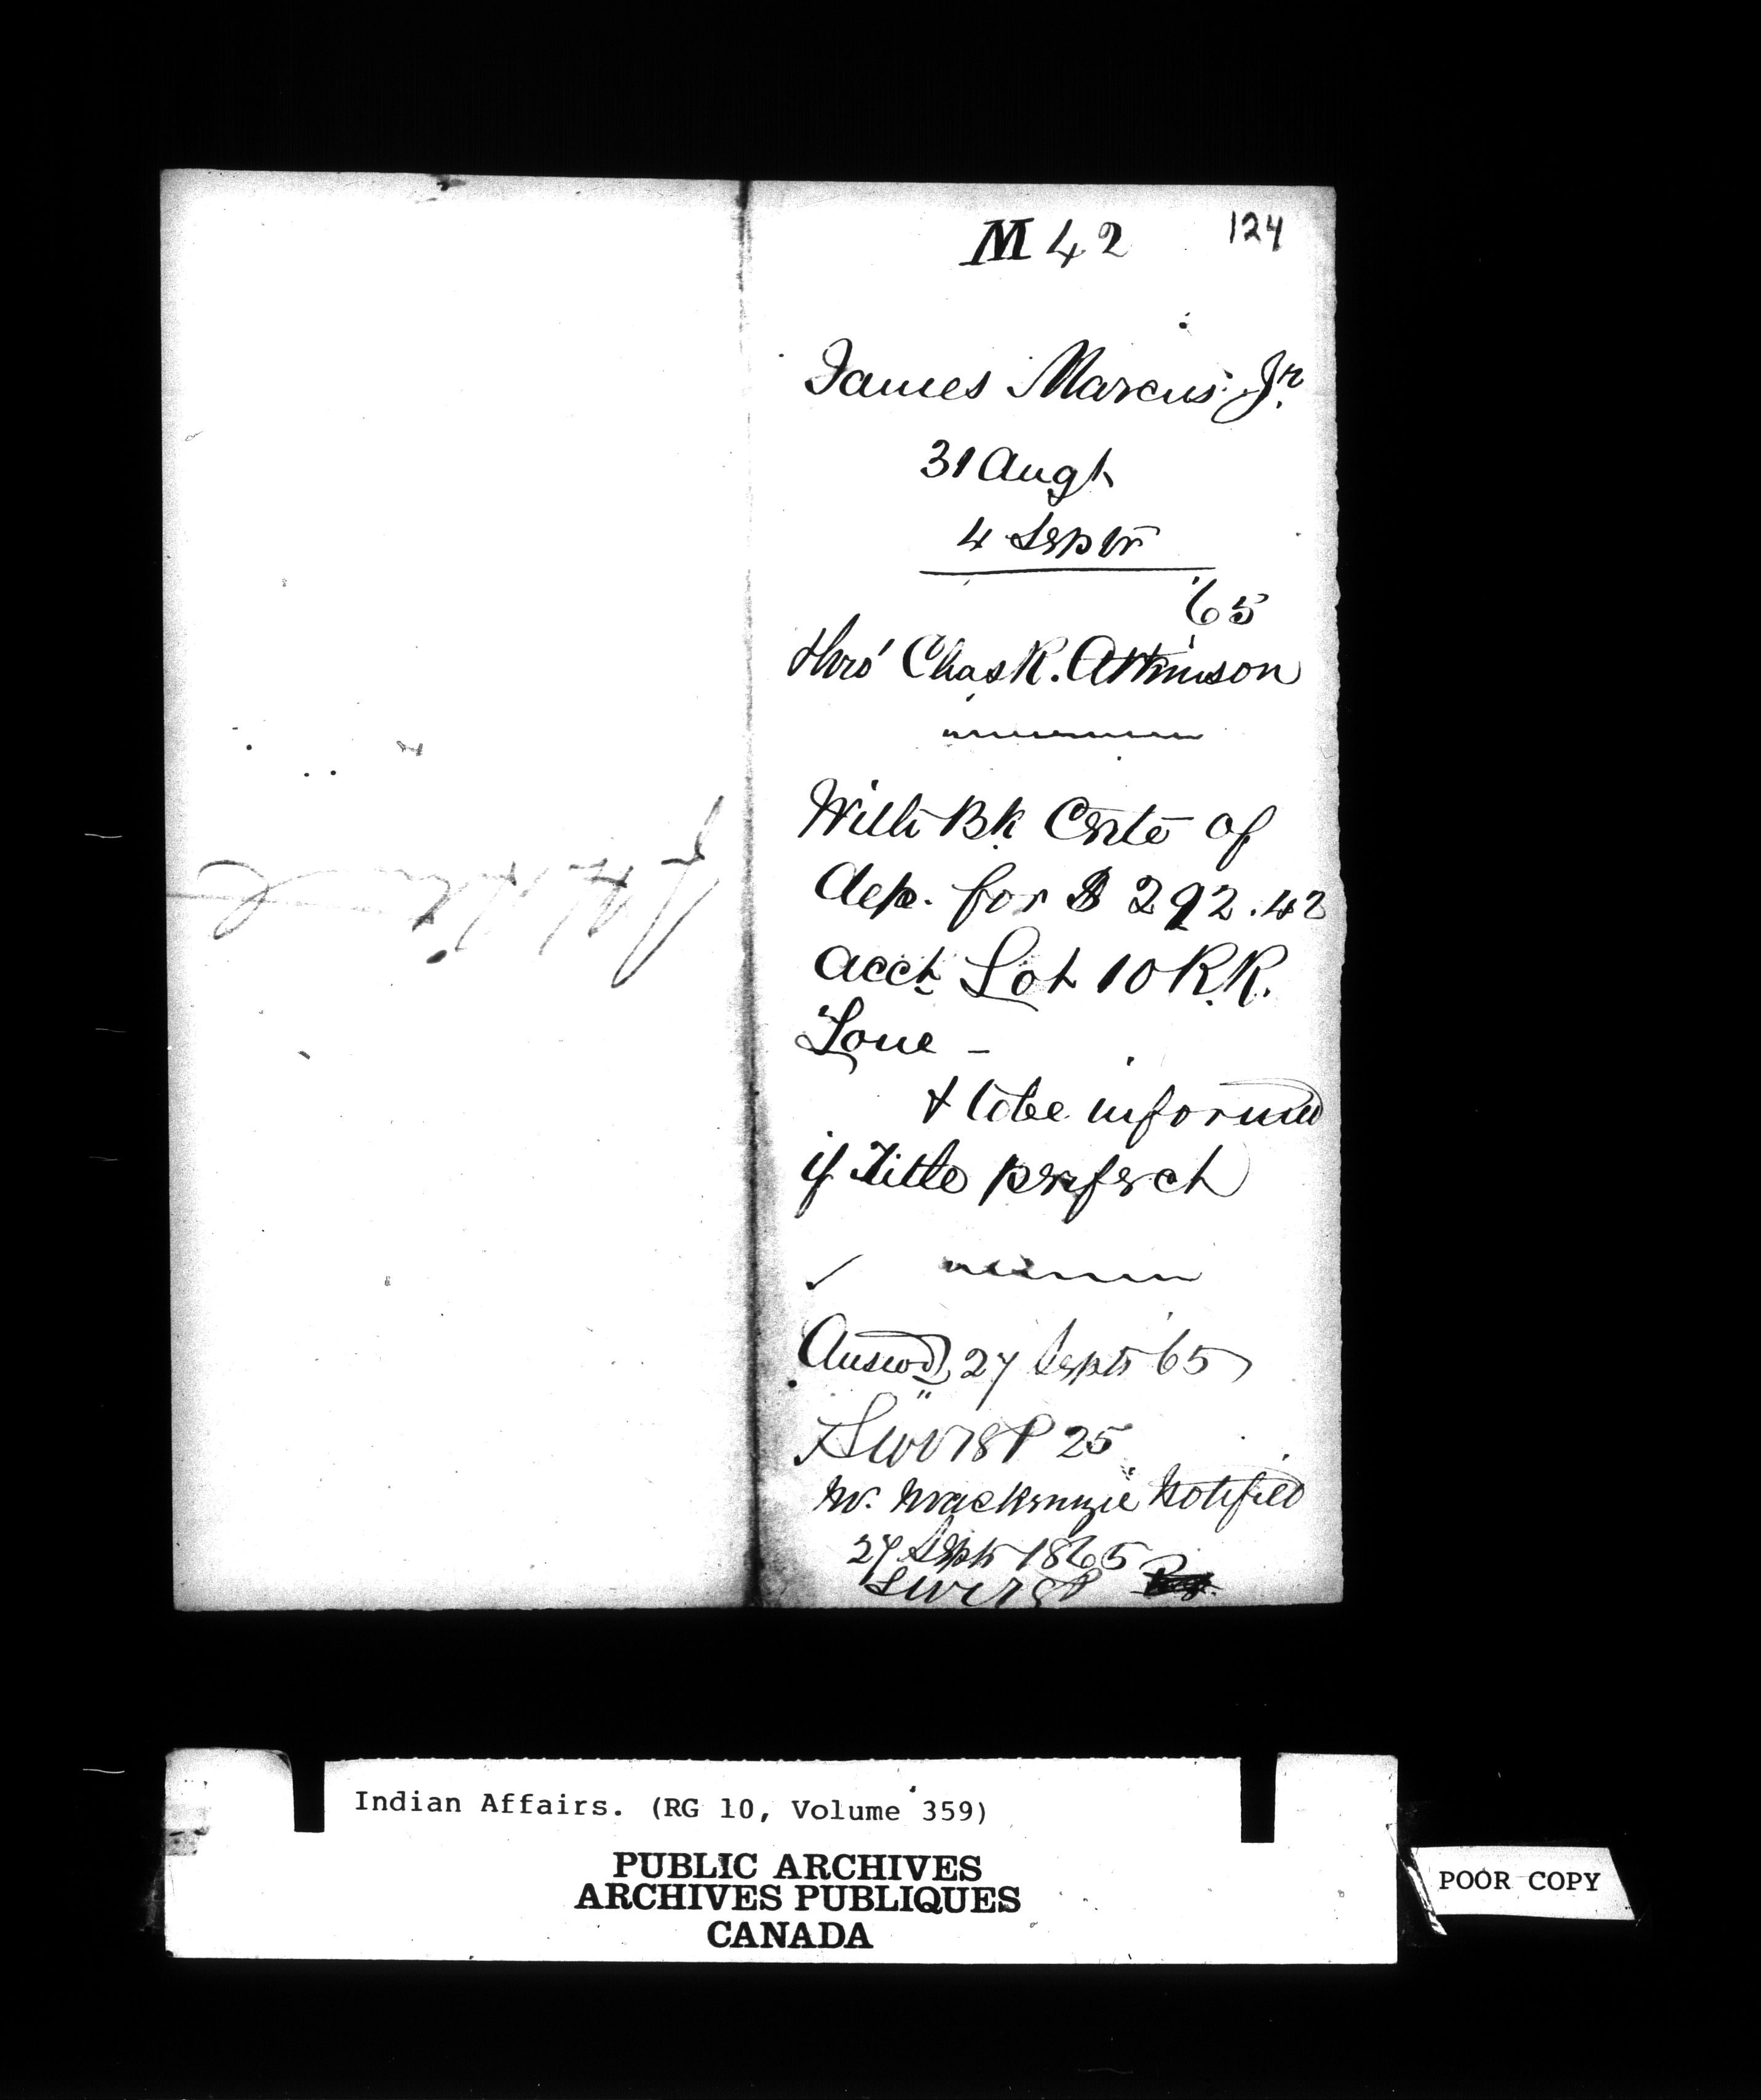 M 42 124
James Marcus Jr.
31 Augt
4 Septr
'65
thro' Chas R. Atkinson
With Bk Certe of
dep. for $ 292.42
acct Lot 10 R.R.
Tone –
& to be informed
if Title perfect
✓
Answd 27 Septr 65
78 P 25
Mr. Mackenzie Notified
27 Septr 1865
Indian Affairs. (RG 10, Volume 359)
PUBLIC ARCHIVES
ARCHIVES PUBLIQUES
CANADA
POOR COPY